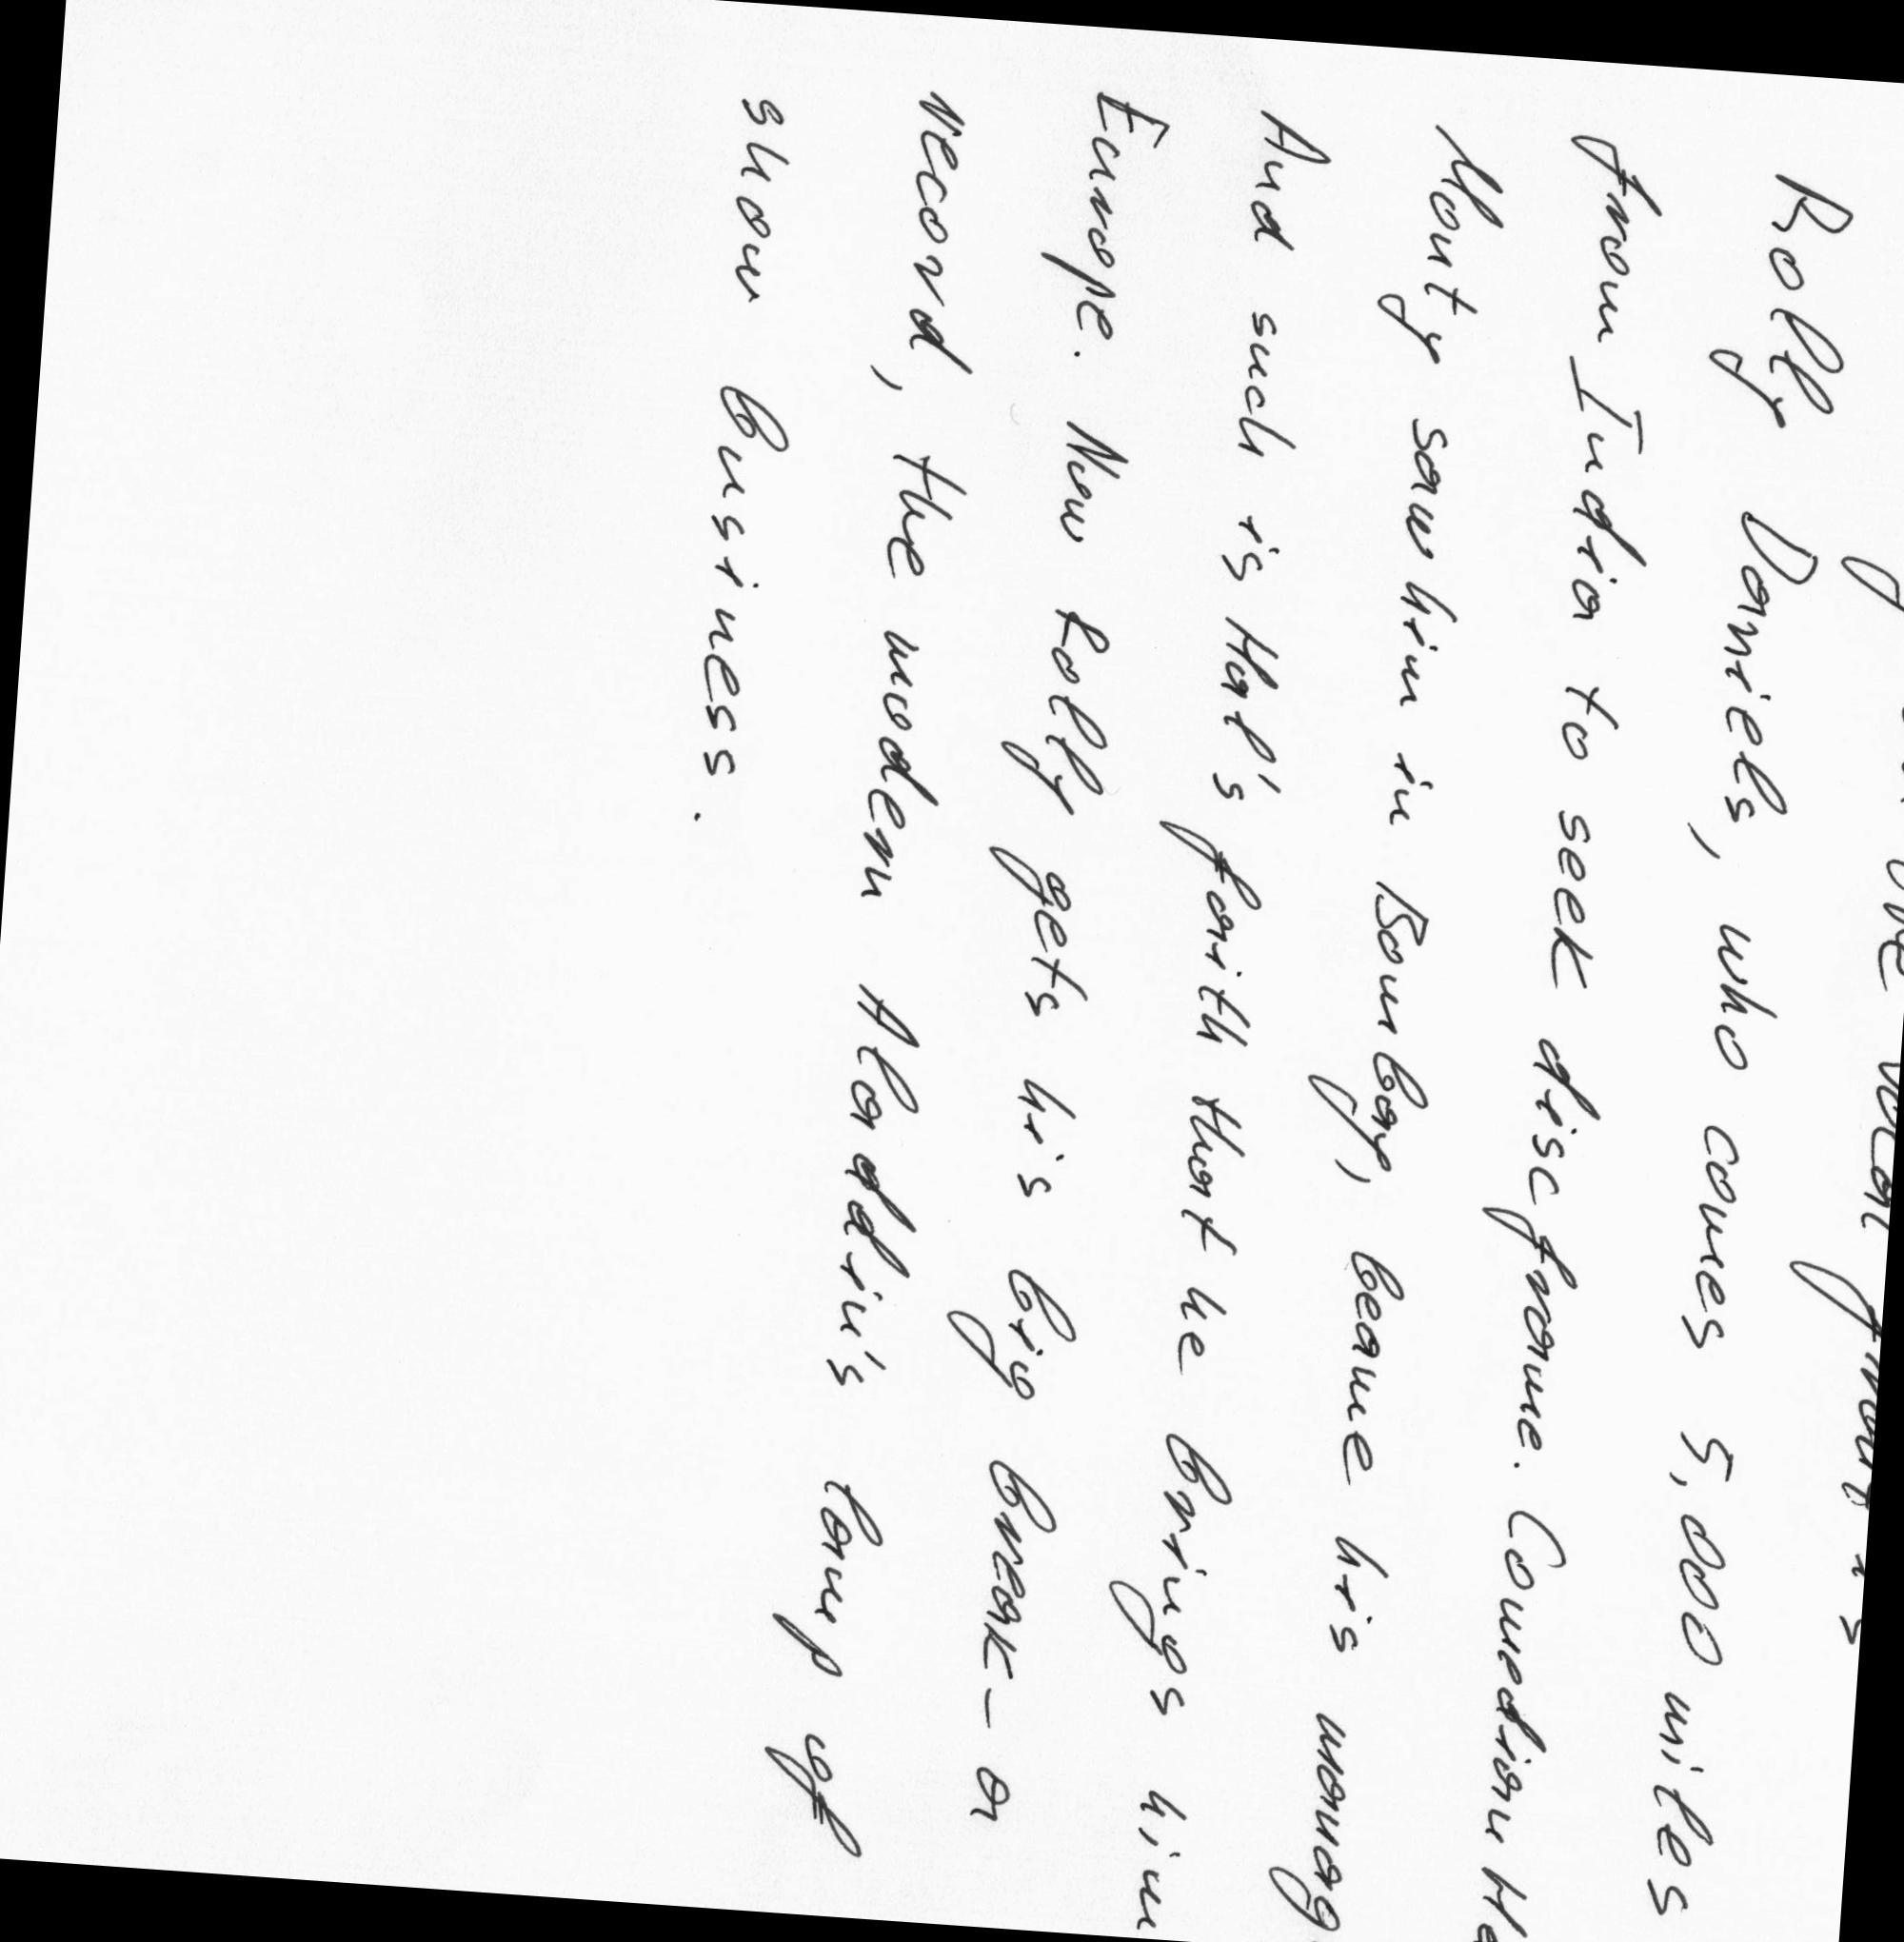 the vocal front is
Rolly Daniels, who comes 5,000 miles
from India to seek disc frame. Comedian
Monty saw him in Bombay, beame his
And such is Hal's faith that he brings him
Europe. Now Rolly gets his big break - a
record, the modern Aladdin's lamp of
show business.